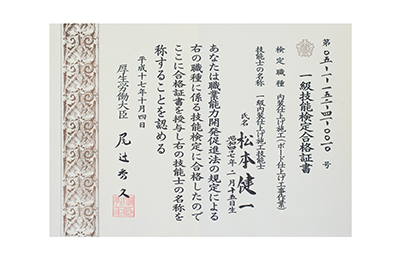 第〇五-一-一五二-四一-〇〇一〇号
一級技能検定合格証書
検定職種 内装仕上げ施工(ボード仕上げ工事作業)
技能士の名称 一級内装仕上げ施工技能士
氏名 松本健一
昭和四十七年二月十五日生
あなたは職業能力開発促進法の規定による
右の職種に係る技能検定に合格したので
ここに合格証書を授与し右の技能士の名称を
称することを認める
平成十七年十月四日
厚生労働大臣 尾辻秀久